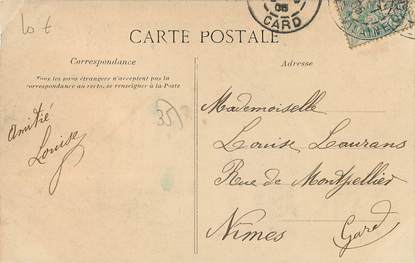 10 €
05
GARD
CARTE POSTALE
Correspondance
Tous les pays étrangers n'acceptent pas la
correspondance au recto, se renseigner à la Poste
Amitié
Louise
35
Adresse
Mademoiselle
Louise Laurans
Rue de Montpellier
Nîmes
Gard